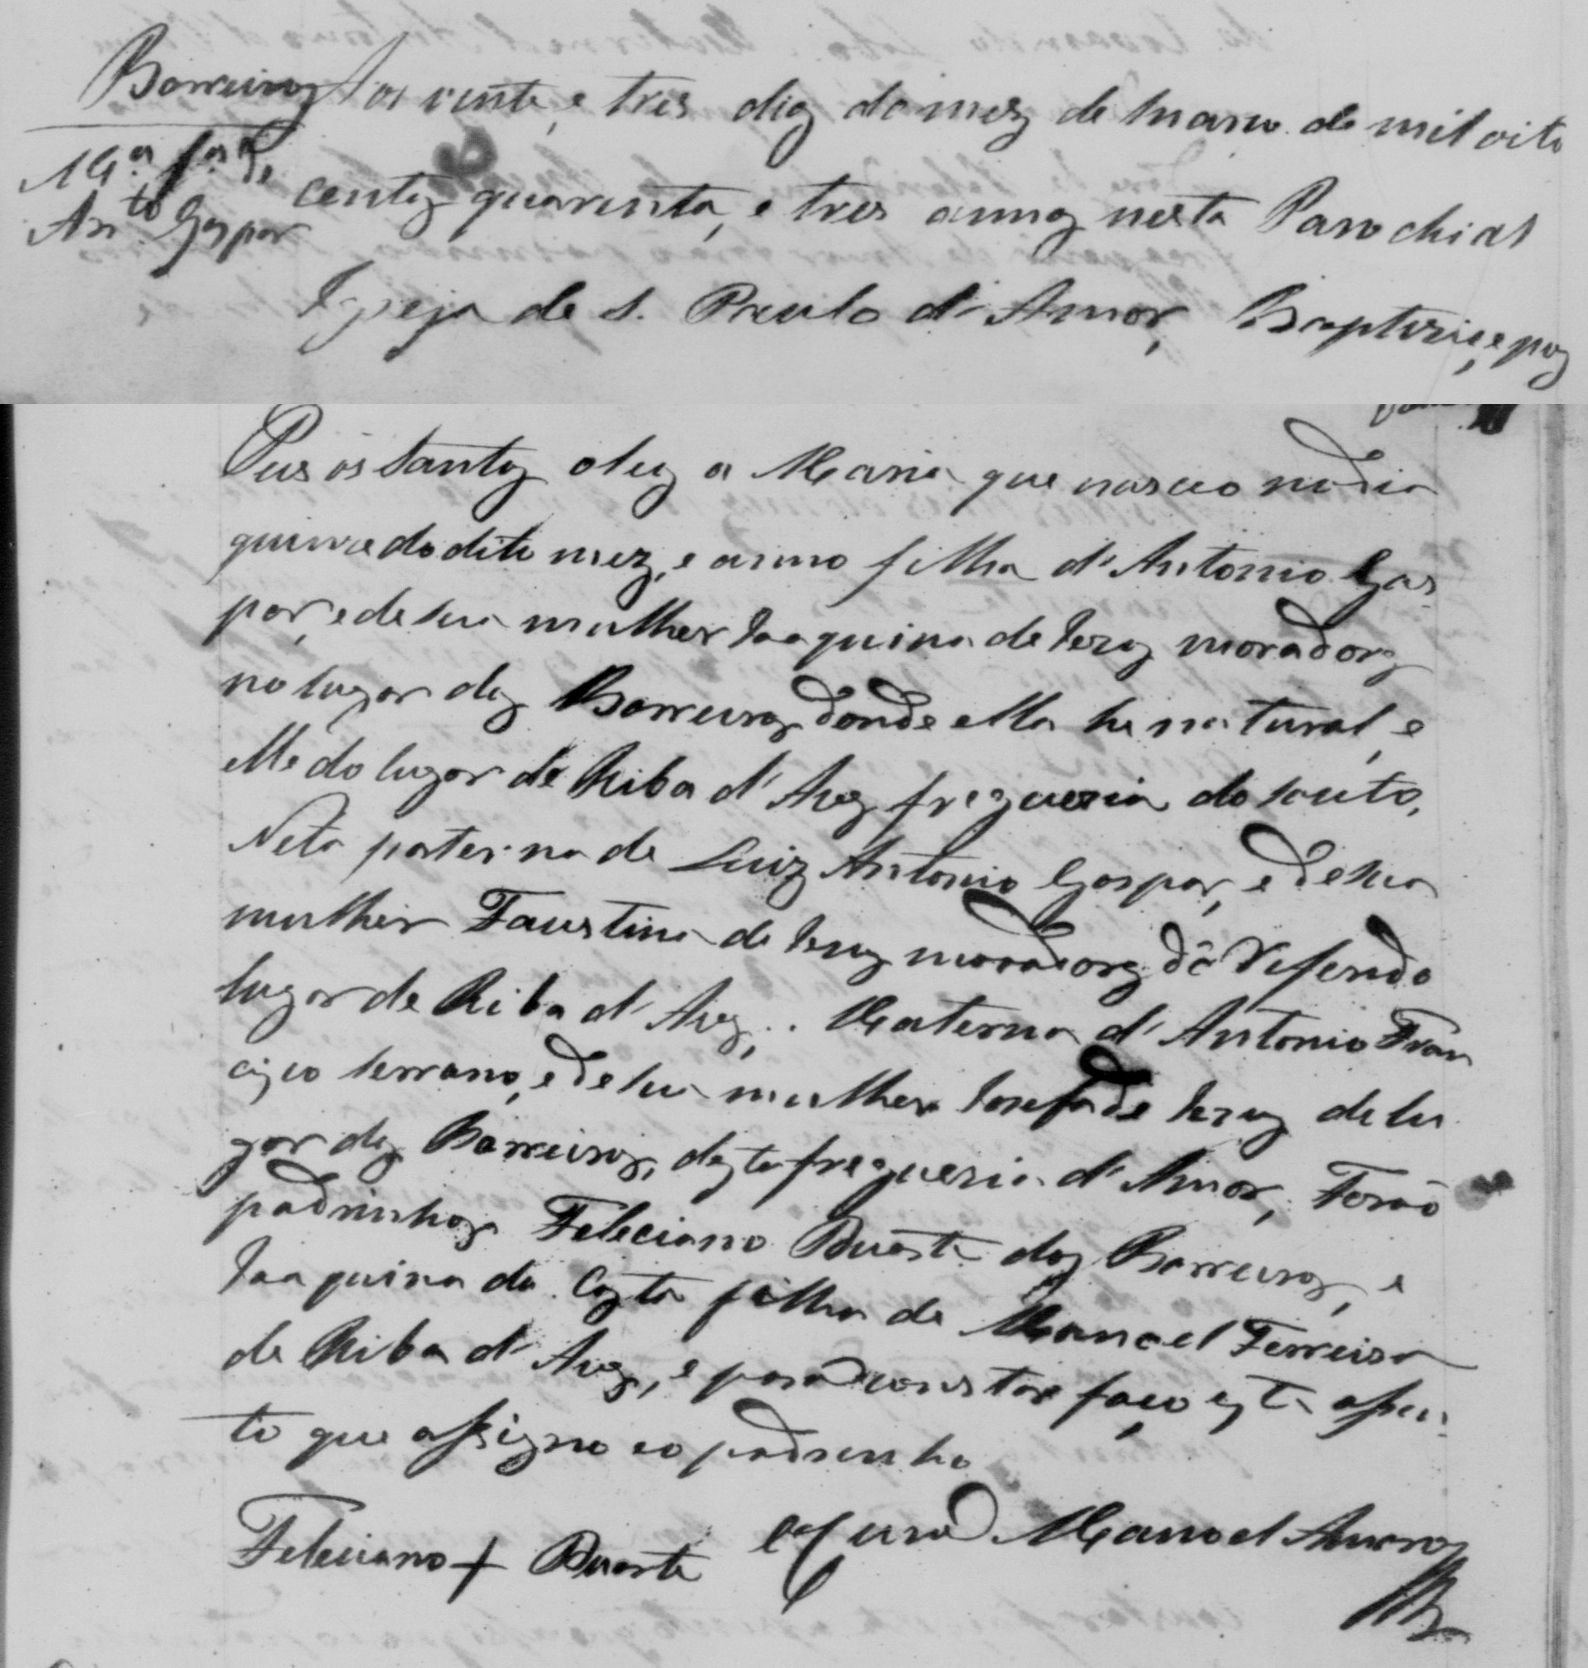 Barreiros
M.ª f.ª de
Ant.to Gaspar
Aos vinte, e tres dias do mez de Março de mil oito
centos quarenta, e tres annos nesta Parochial
Igreja de S. Paulo d'Amor, Baptizei, e puz
Pus os Santos oleos a Maria que nasceo no dia
quinze do dito mez, e anno filha d'Antonio Gas
par, e de sua mulher Joaquina de Jezus moradores
no lugar dos Barreiros donde ella he natural, e
elle do lugar de Riba d'Aves freguezia do Souto,
Neta paterna de Luiz Antonio Gaspar, e de sua
mulher Faustina de Jezus moradores do referido
lugar de Riba d'Aves; Materna d'Antonio Fran
cisco Serrano, e de sua mulher Josefa de Jezus do lu
gar dos Barreiros, desta freguezia d'Amor, Forão
padrinhos Feleciano Duarte dos Barreiros, e
Joaquina da Costa filha de Manoel Ferreira
de Riba d'Aves, e para constar faço este assen
to que assigno e o padrinho
Feleciano + Duarte O Cura Manoel